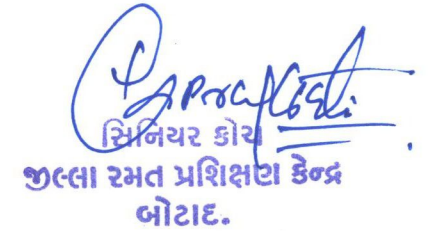 સિનિયર કોચ
જીલ્લા રમત પ્રશિક્ષણ કેન્દ્ર
બોટાદ.